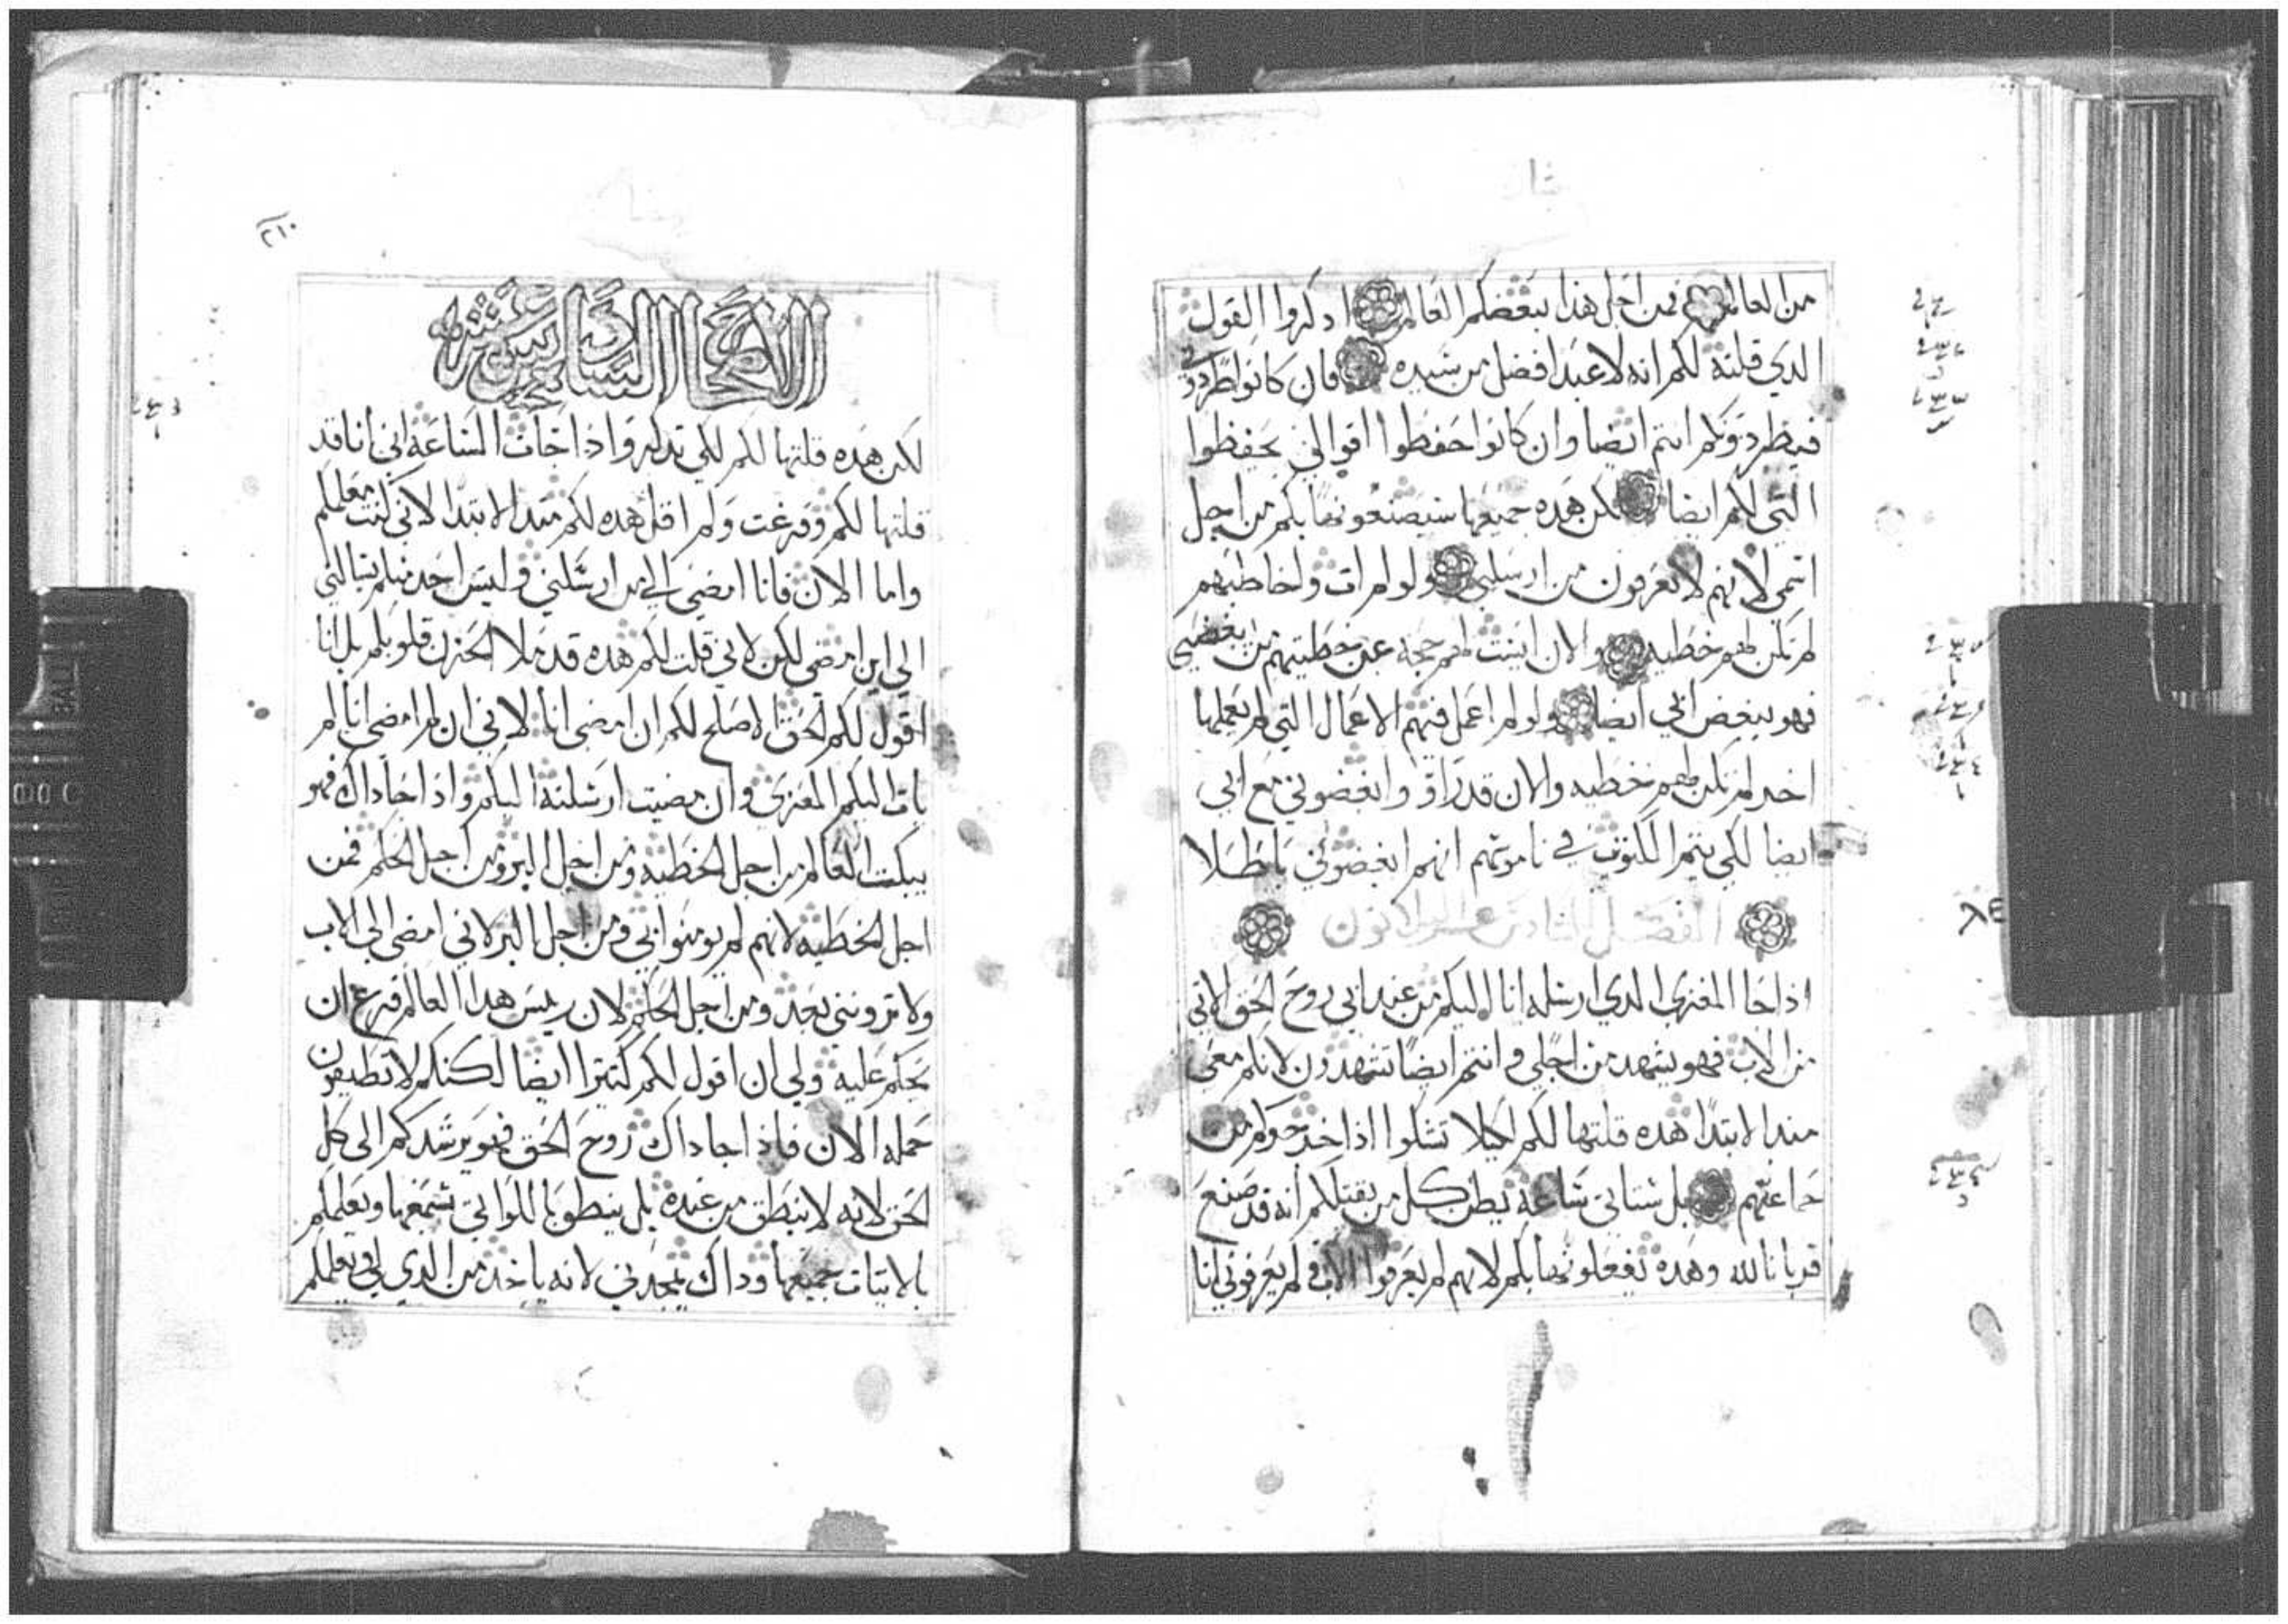 من العالم فمن اجل هذا يبغضكم العالم ادكروا القول
الدي قلته لكم انه لا عبد افضل من سيده فان كانوا طردوني
فيطردونكم انتم ايضا وان كانوا حفظوا اقوالي يحفظوا
التي لكم ايضا لكن هده جميعها سيصنعونها بكم من اجل
اسمي لانهم لا يعرفون من ارسلني ولو لم ات واخاطبهم
لم تكن لهم خطيه والان ليست لهم حجه عن خطيتهم من يبغضني
فهو يبغض ابي ايضا ولو لم اعمل فيهم الاعمال التي لم يعملها
اخر لم تكن لهم خطيه والان قد راوا وابغضوني مع ابي
ايضا لكي يتم المكتوب في ناموسهم انهم ابغضوني باطلا
الفصل السادس والثلاثون
اذا جا المعزي الدي ارسله انا اليكم من عند ابي روح الحق الاتي
من الاب فهو يشهد من اجلي وانتم ايضا تشهدون لانكم معي
مند الابتدا هده قلتها لكم لكيلا تشكوا اذا اخرجوكم من
جماعتهم بل ستاتي ساعة يظن كل من يقتلكم انه قد صنع
قربانا لله وهده يفعلونها بكم لانهم لم يعرفوا الاب ولم يعرفوني انا
٢١٠
الاصحاح السادس عشر
لكن هده قلتها لكم لكي تدكروا اذا جات الساعة اني انا قد
قلتها لكم وفرغت ولم اقل هده لكم مند الابتدا لاني كنت معكم
واما الان فانا امضي الي من ارسلني وليس احد منكم يسالني
الي اين امضي لكن لاني قلت لكم هده قد ملا الحزن قلوبكم بل انا
اقول لكم الحق الاصلح لكم ان امضي انا لاني ان لم امضي انا لم
يات اليكم المعزي وان مضيت ارسلته اليكم واذا جا داك فهو
يبكت العالم من اجل الخطيه ومن اجل البر ومن اجل الحكم فمن
اجل الخطيه لانهم لم يومنوا بي ومن اجل البر لاني امضي الي الاب
ولا ترونني بعد ومن اجل الحكم لان ريس هدا العالم فرغ ان
يحكم عليه ولي ان اقول لكم كتيرا ايضا لكنكم لا تطيقون
حمله الان فاذا جا داك روح الحق فهو يرشدكم الى كل
الحق لانه لا ينطق من عنده بل ينطق باللواتي يسمعها ويعلمكم
بالاتيات جميعها وداك يمجدني لانه ياخد من الدي لي يعلمكم